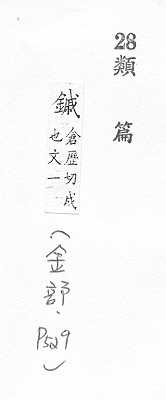 28類篇
鏚
倉歷切戉
也文一
（金部.P529）